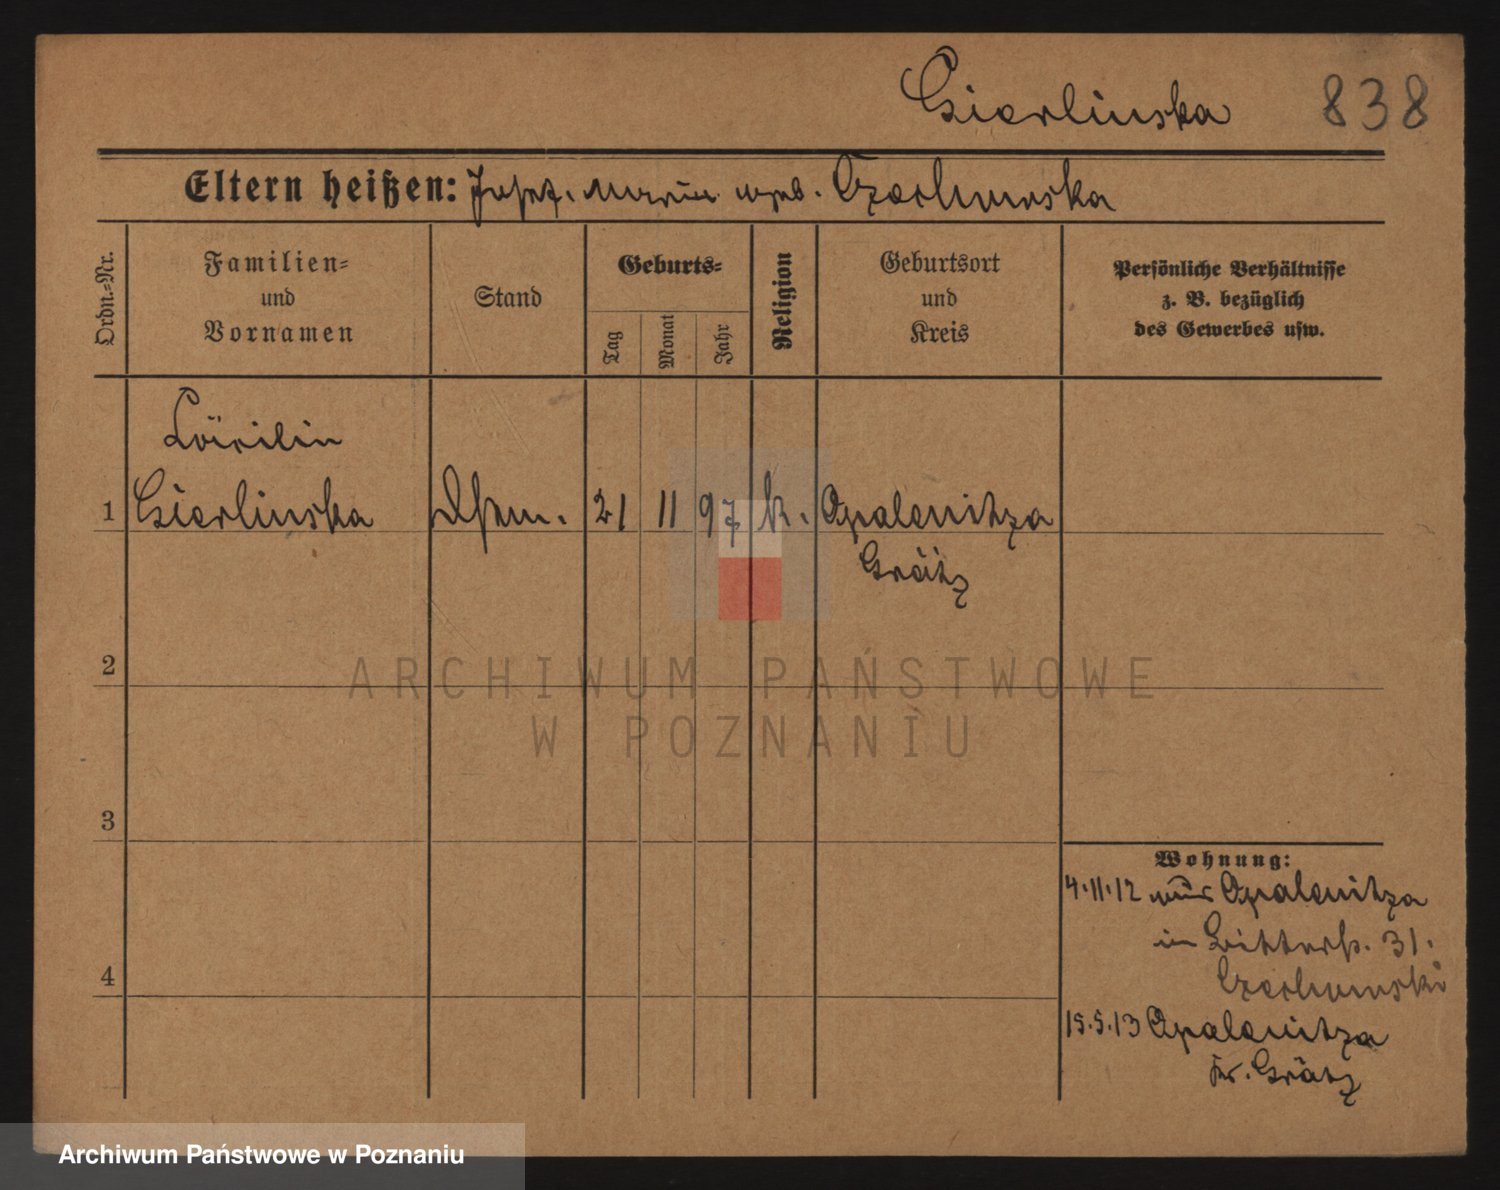 Gierlinska 838
Eltern heißen: Josef. Maria geb. Czachowska
Ordn.-Nr.
Familien-
und
Vornamen
Stand
Geburts-
Tag
Monat
Jahr
Religion
Geburtsort
und
Kreis
Persönliche Verhältnisse
z. B. bezüglich
des Gewerbes usw.
Cäcilie
1 Gierlinska 21 11 97 k. Opalenitza
Grätz
2
ARCHIWUM PAŃSTWOWE
W POZNANIU
3
Wohnung:
4.11.12 aus Opalenitza
in 31.
4
15.5.13 Opalenitza
Kr. Grätz
Archiwum Państwowe w Poznaniu